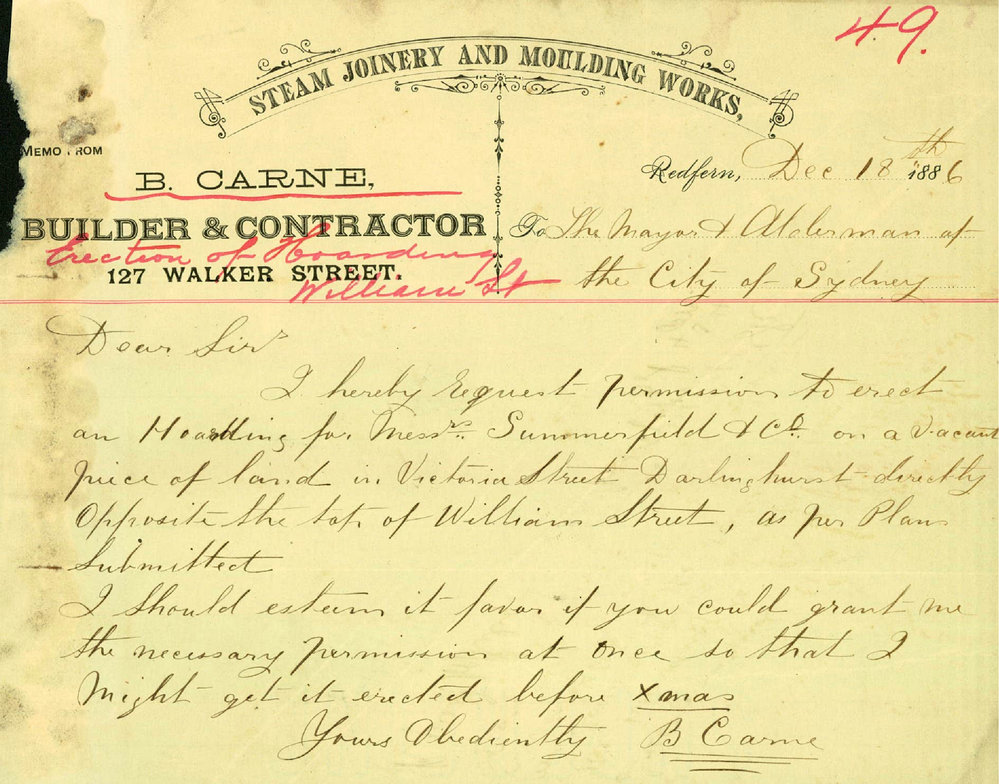 49.
STEAM JOINERY AND MOULDING WORKS,
MEMO FROM
B. CARNE,
BUILDER & CONTRACTOR
Erection of Hoarding
127 WALKER STREET.
William St
Redfern, Dec 18th 1886
To The Mayor & Alderman of
the City of Sydney
Dear Sirs
I hereby request permission to erect
an Hoarding for Messrs. Summerfield & Co. on a vacant
piece of land in Victoria Street Darlinghurst directly
Opposite the top of William Street, as per Plans
Submitted
I should esteem it favor if you could grant me
the necessary permission at once so that I
Might get it erected before Xmas
Yours Obediently B Carne